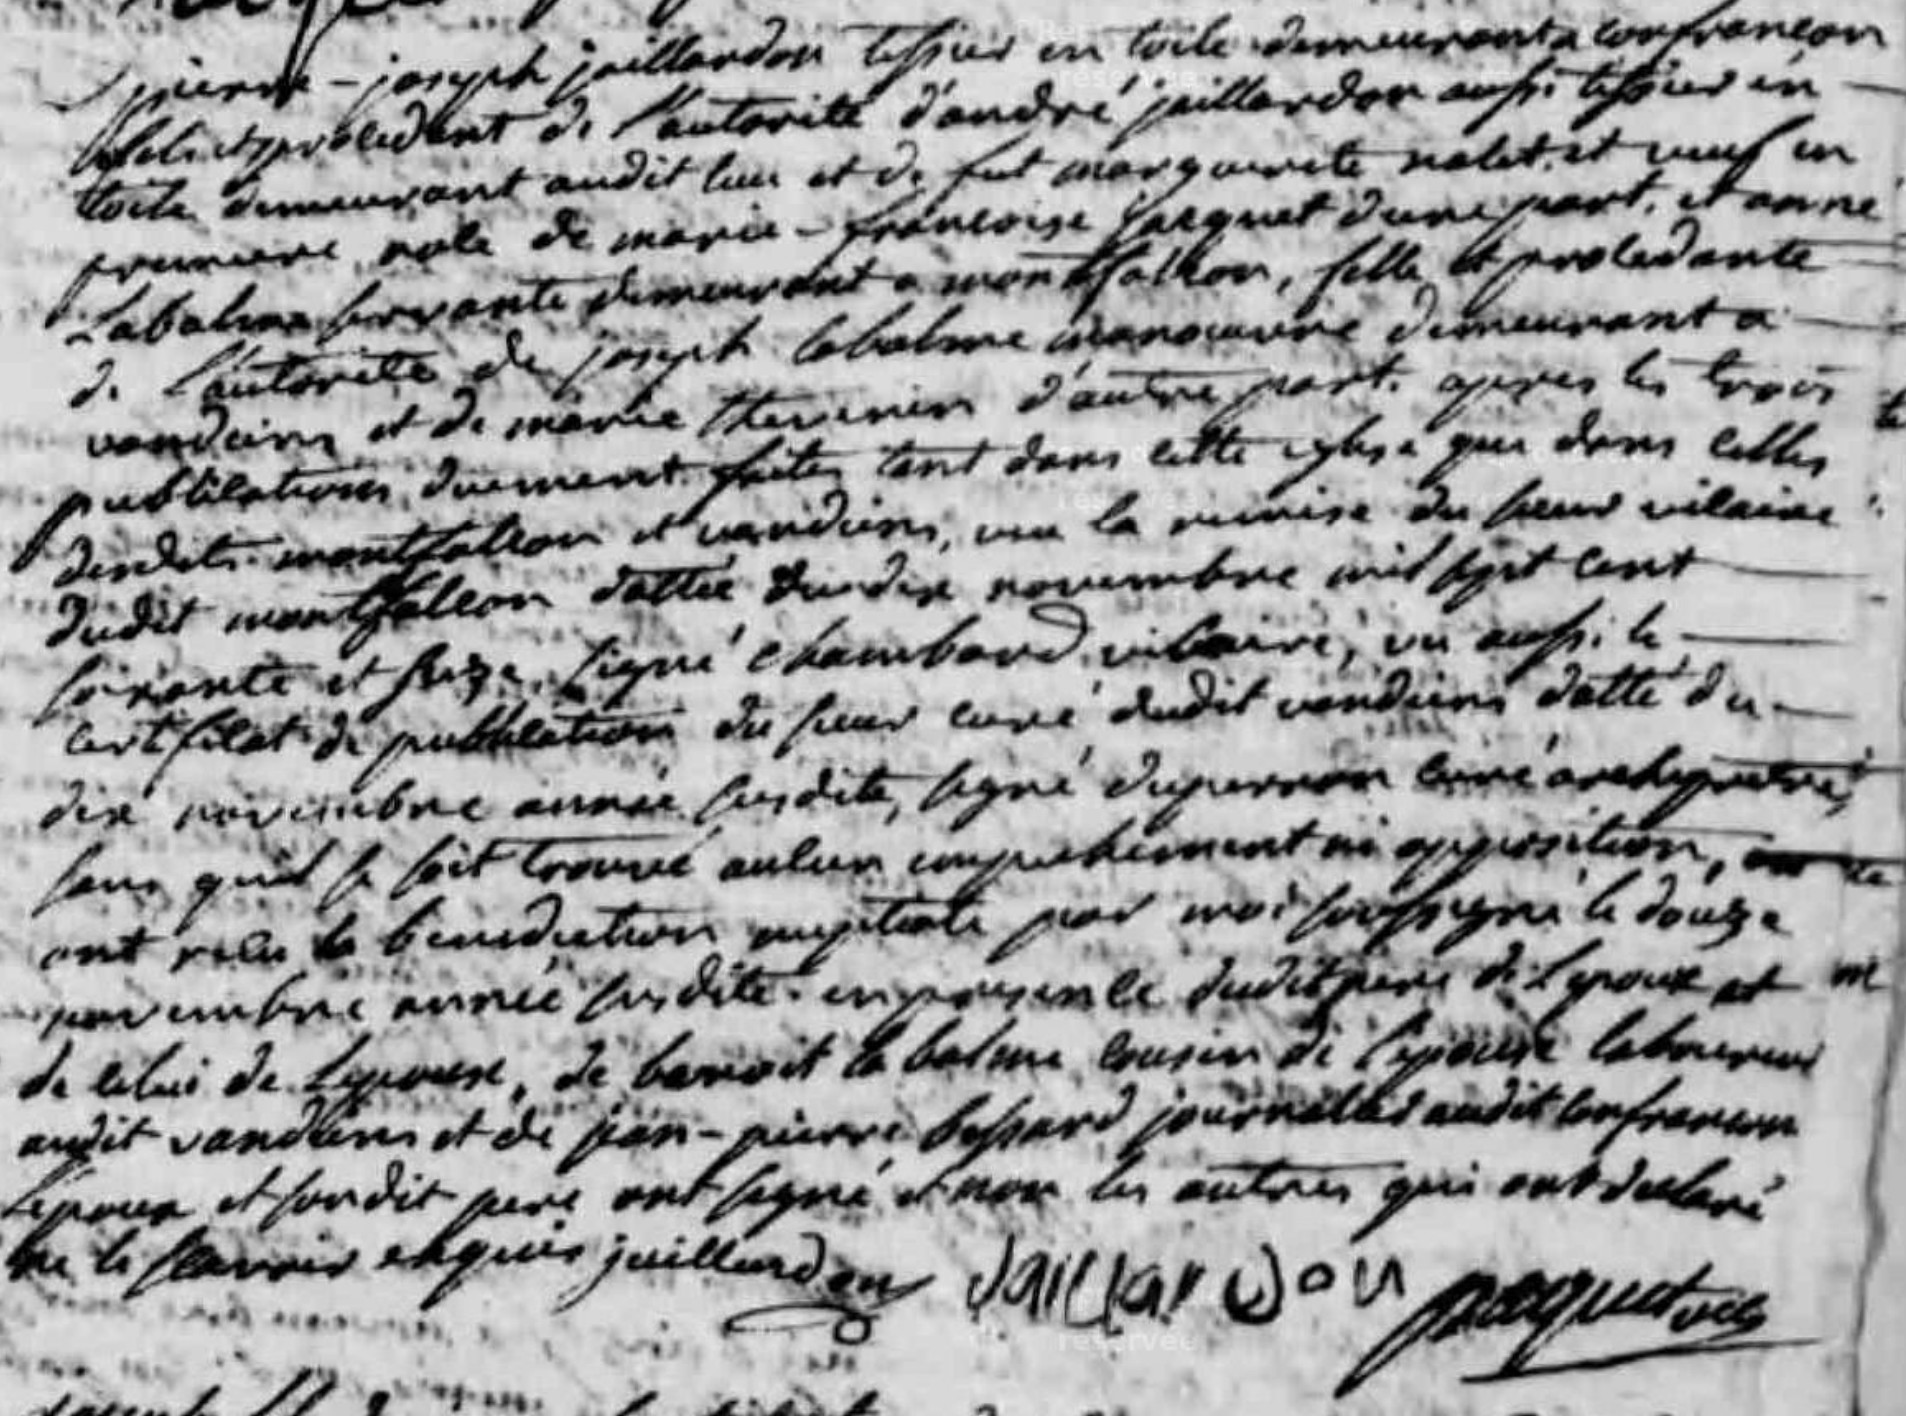 pierre-joseph jaillardon tissier en toile demeurant a confrancon
et procedant de l'autorité d'andré jaillardon aussi tissier en
toile demeurant audit lieu et de fut marguerite nalet et veuf en
premiere nole de marie-francoise jacquet d'une part, et anne
Labalme servante demeurant a montfalcon, fille et procedante
de l'autorité de joseph labalme manoeuvre demeurant a
vandeins et de marie thevenin d'autre part. apres les trois
publications duement faites tant dans cette eglise que dans celles
desdits montfalcon et vandeins, vu la remise du sieur vicaire
dudit montfalcon dattée du dix novembre mil sept cent
soixante et seize signé chambard vicaire, vu aussi le
certificat de publication du sieur curé dudit vandeins datté du
dix novembre année susdite, signé duperron curé archypretre,
sans quil se soit trouvé aucun empechement ni opposition,
ont recu la benediction nuptiale par moi soussigné le douze
novembre année susdite en presence dudit pere de l'epoux et
de celui de l'epouse, de benoit la balme cousin de l'epouse laboureur
audit vandeins et de jean-pierre bessard journalier audit confrancon
l'epoux et son dit pere ont signé et non les autres qui ont declaré
ne le scavoir enquis jaillardon Jaillardon